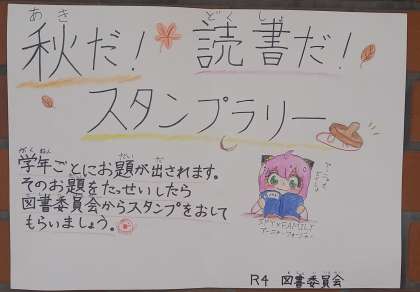 あき どくしょ
秋だ! 読書だ!
スタンプラリー
がくねん だい だ
学年ごとにお題が出されます。
そのお題をたっせいしたら
図書委員会からスタンプをおして
もらいましょう。
SPY×FAMILY
アーニャ・フォージャー
R4 図書委員会